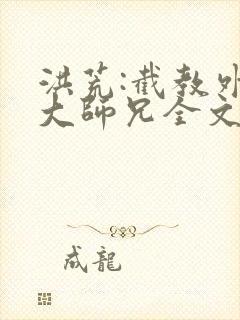 洪荒:截教外
大師兄全文
成龍